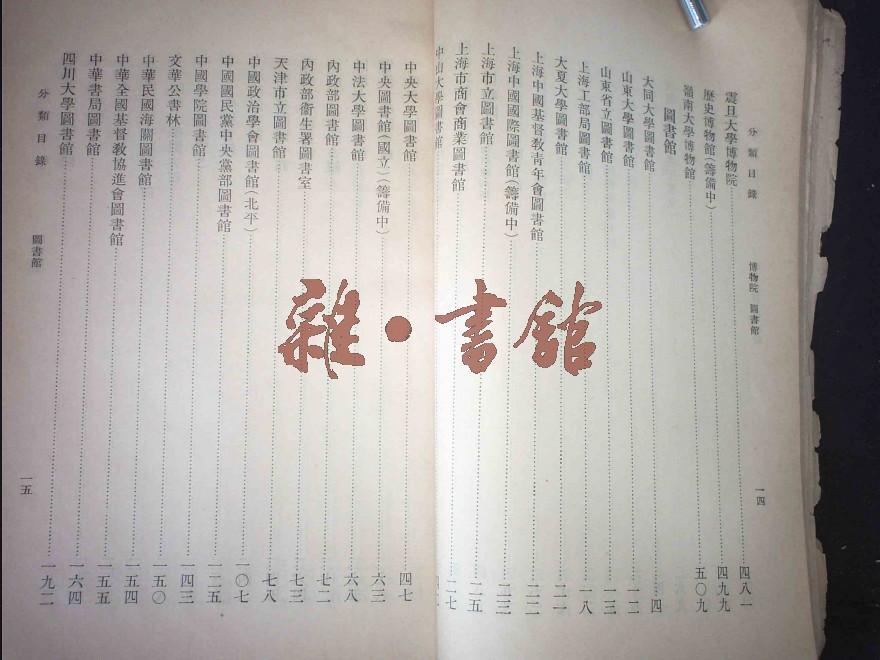 分類目錄　博物院　圖書館
一四
震旦大學博物院……四八一
歷史博物館(籌備中)……四九九
嶺南大學博物館……五〇九
圖書館
大同大學圖書館……四
山東大學圖書館……一二
山東省立圖書館……一三
上海工部局圖書館……一八
大夏大學圖書館……二一
上海中國基督教青年會圖書館……二二
上海中國國際圖書館(籌備中)……二三
上海市立圖書館……二五
上海市商會商業圖書館……二七
中山大學圖書館
中央大學圖書館……四七
中央圖書館(國立)(籌備中)……六三
中法大學圖書館……六八
內政部圖書館……七二
內政部衞生署圖書室……七三
天津市立圖書館……七八
中國政治學會圖書館(北平)……一〇七
中國國民黨中央黨部圖書館……一二五
中國學院圖書館……一四三
文華公書林……一五〇
中華民國海關圖書館……一五四
中華全國基督教協進會圖書館……一五五
中華書局圖書館……一六四
四川大學圖書館……一九二
分類目錄　圖書館
一五
雜·書館